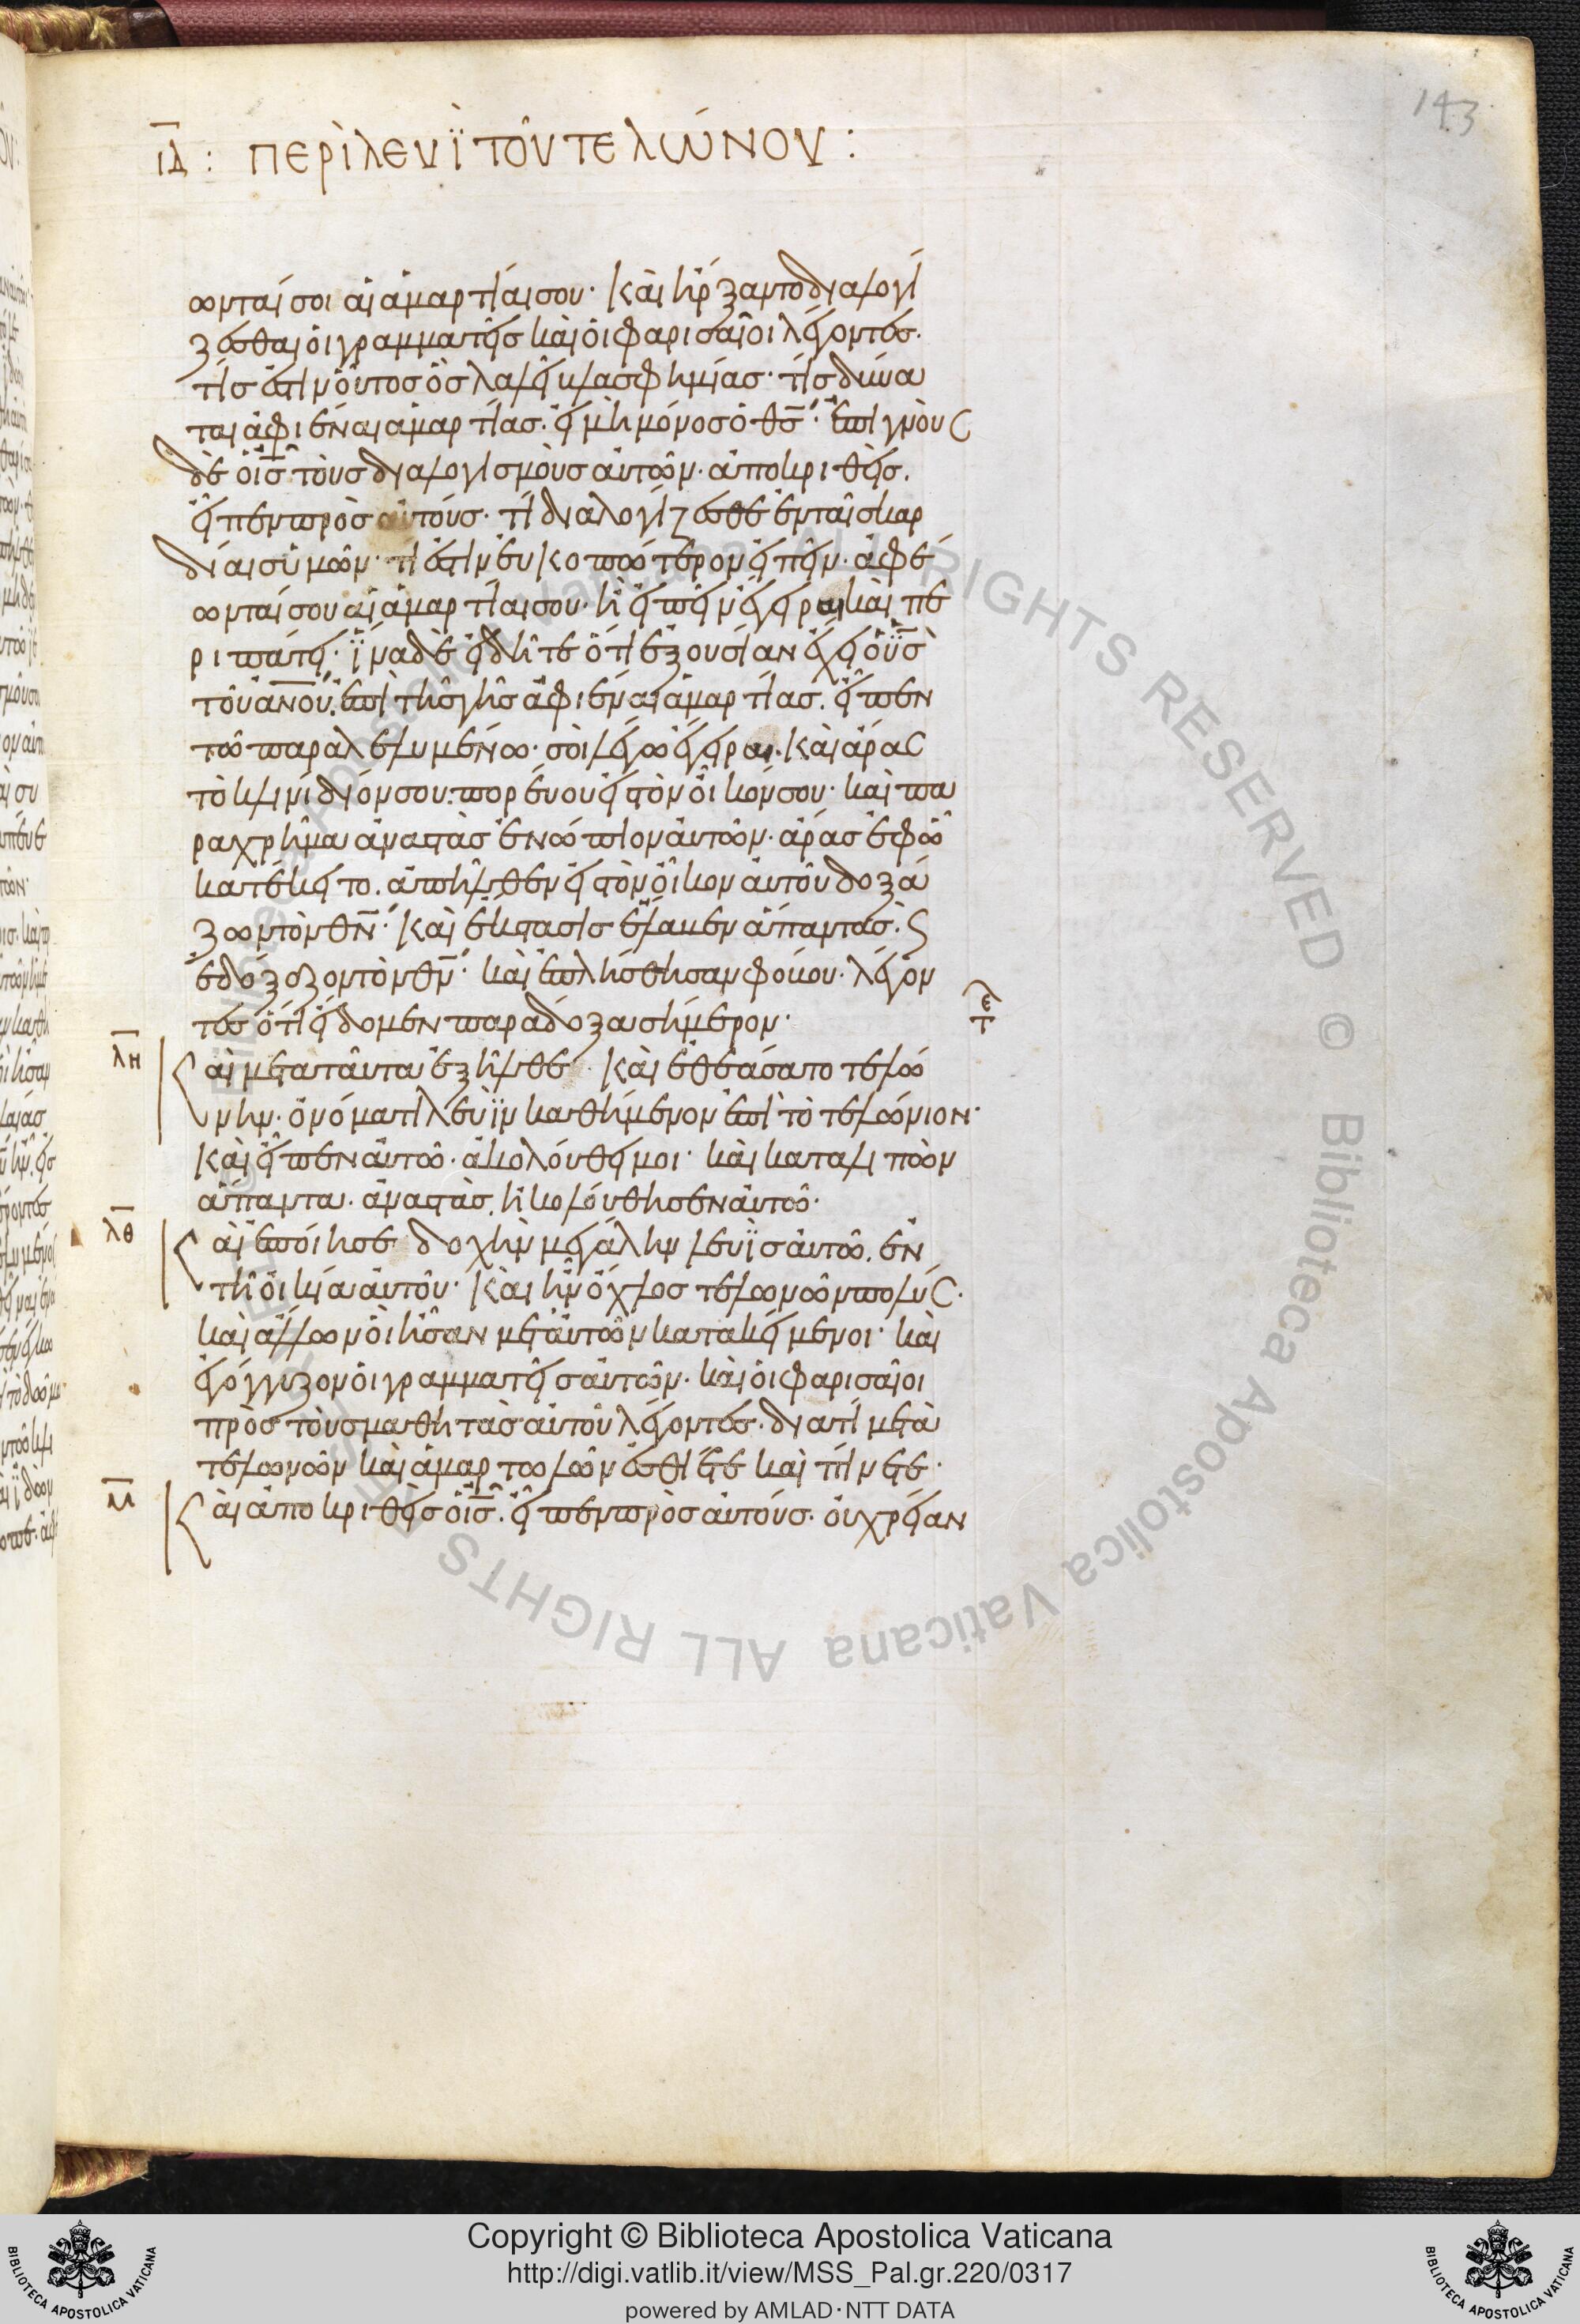 143
ιδ : περὶ λευῒ τοῦ τελώνου :
ωνταί σοι αἱ ἁμαρτίαι σου· καὶ ἤρξαντο διαλογί
ζεσθαι οἱ γραμματεῖς καὶ οἱ φαρισαῖοι λέγοντες·
τίς ἐστιν οὗτος ὃς λαλεῖ βλασφημίας· τίς δύνα
ται ἀφιέναι ἁμαρτίας· εἰ μὴ μόνος ὁ θς̅· ἐπιγνοὺς
δὲ ὁ ις̅ τοὺς διαλογισμοὺς αὐτῶν· ἀποκριθεὶς·
εἶπεν πρὸς αὐτούς· τί διαλογίζεσθε ἐν ταῖς καρ
δίαις ὑμῶν· τί ἐστιν εὐκοπώτερον εἰπεῖν· ἀφέ
ωνταί σου αἱ ἁμαρτίαι σου· ἢ εἰπεῖν ἔγειραι καὶ πε
ριπάτει· ἵνα δὲ εἰδῆτε ὅτι ἐξουσίαν ἔχει ὁ υς̅
τοῦ ανου̅· ἐπὶ τῆς γῆς ἀφιέναι ἁμαρτίας· εἶπεν
τῶ παραλελυμένω· σοὶ λέγω ἔγειραι· καὶ ἄρας
τὸ κλινίδιόν σου· πορεύου εἰς τὸν οἶκόν σου· καὶ πα
ραχρῆμα ἀναστὰς ἐνώπιον αὐτῶν· ἄρας ἐφ ὧ
κατέκειτο· ἀπῆλθεν εἰς τὸν οἶκον αὐτοῦ δοξά
ζων τὸν θν̅· καὶ ἔκστασις ἔλαβεν ἅπαντας· ϛ
ἐδόξαζον τὸν θν̅· καὶ ἐπλήσθησαν φόβου· λέγον
τες ὅτι εἴδομεν παράδοξα σήμερον·
λη αὶ μετα ταῦτα ἐξῆλθε· καὶ ἐθεάσατο τελώ
νην· ὀνόματι λευῒν καθήμενον ἐπὶ τὸ τελώνιον·
καὶ εἶπεν αὐτῶ· ἀκολούθει μοι· καὶ καταλιπὼν
ἅπαντα· ἀναστὰς· ἠκολούθησεν αὐτῶ·
λθ αὶ ἐποίησε δοχὴν μεγάλην λευῒς αὐτῶ· ἐν
τῆ οἰκία αὐτοῦ· καὶ ἦν ὄχλος τελωνῶν πολύς·
καὶ ἄλλων οἳ ἦσαν μετ αὐτῶν κατακείμενοι· καὶ
ἐγόγγυζον οἱ γραμματεῖς αὐτῶν· καὶ οἱ φαρισαῖοι
πρὸς τοὺς μαθητὰς αὐτοῦ λέγοντες· διατί μετὰ
τελωνῶν καὶ ἁμαρτωλῶν ἐσθίετε καὶ πίνετε·
μ αὶ ἀποκριθεὶς ὁ ις̅· εἶπεν πρὸς αὐτούς· οὐ χρείαν
Copyright © Biblioteca Apostolica Vaticana
http://digi.vatlib.it/view/MSS_Pal.gr.220/0317
powered by AMLAD·NTT DATA